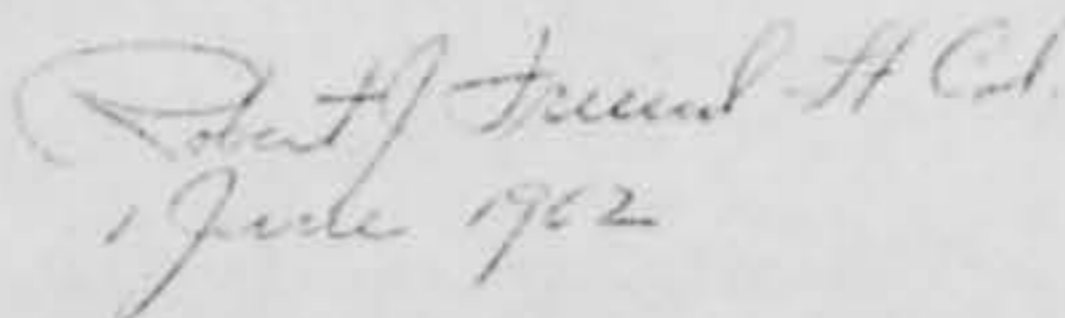 Robert J Friend Lt Col.
1 June 1962